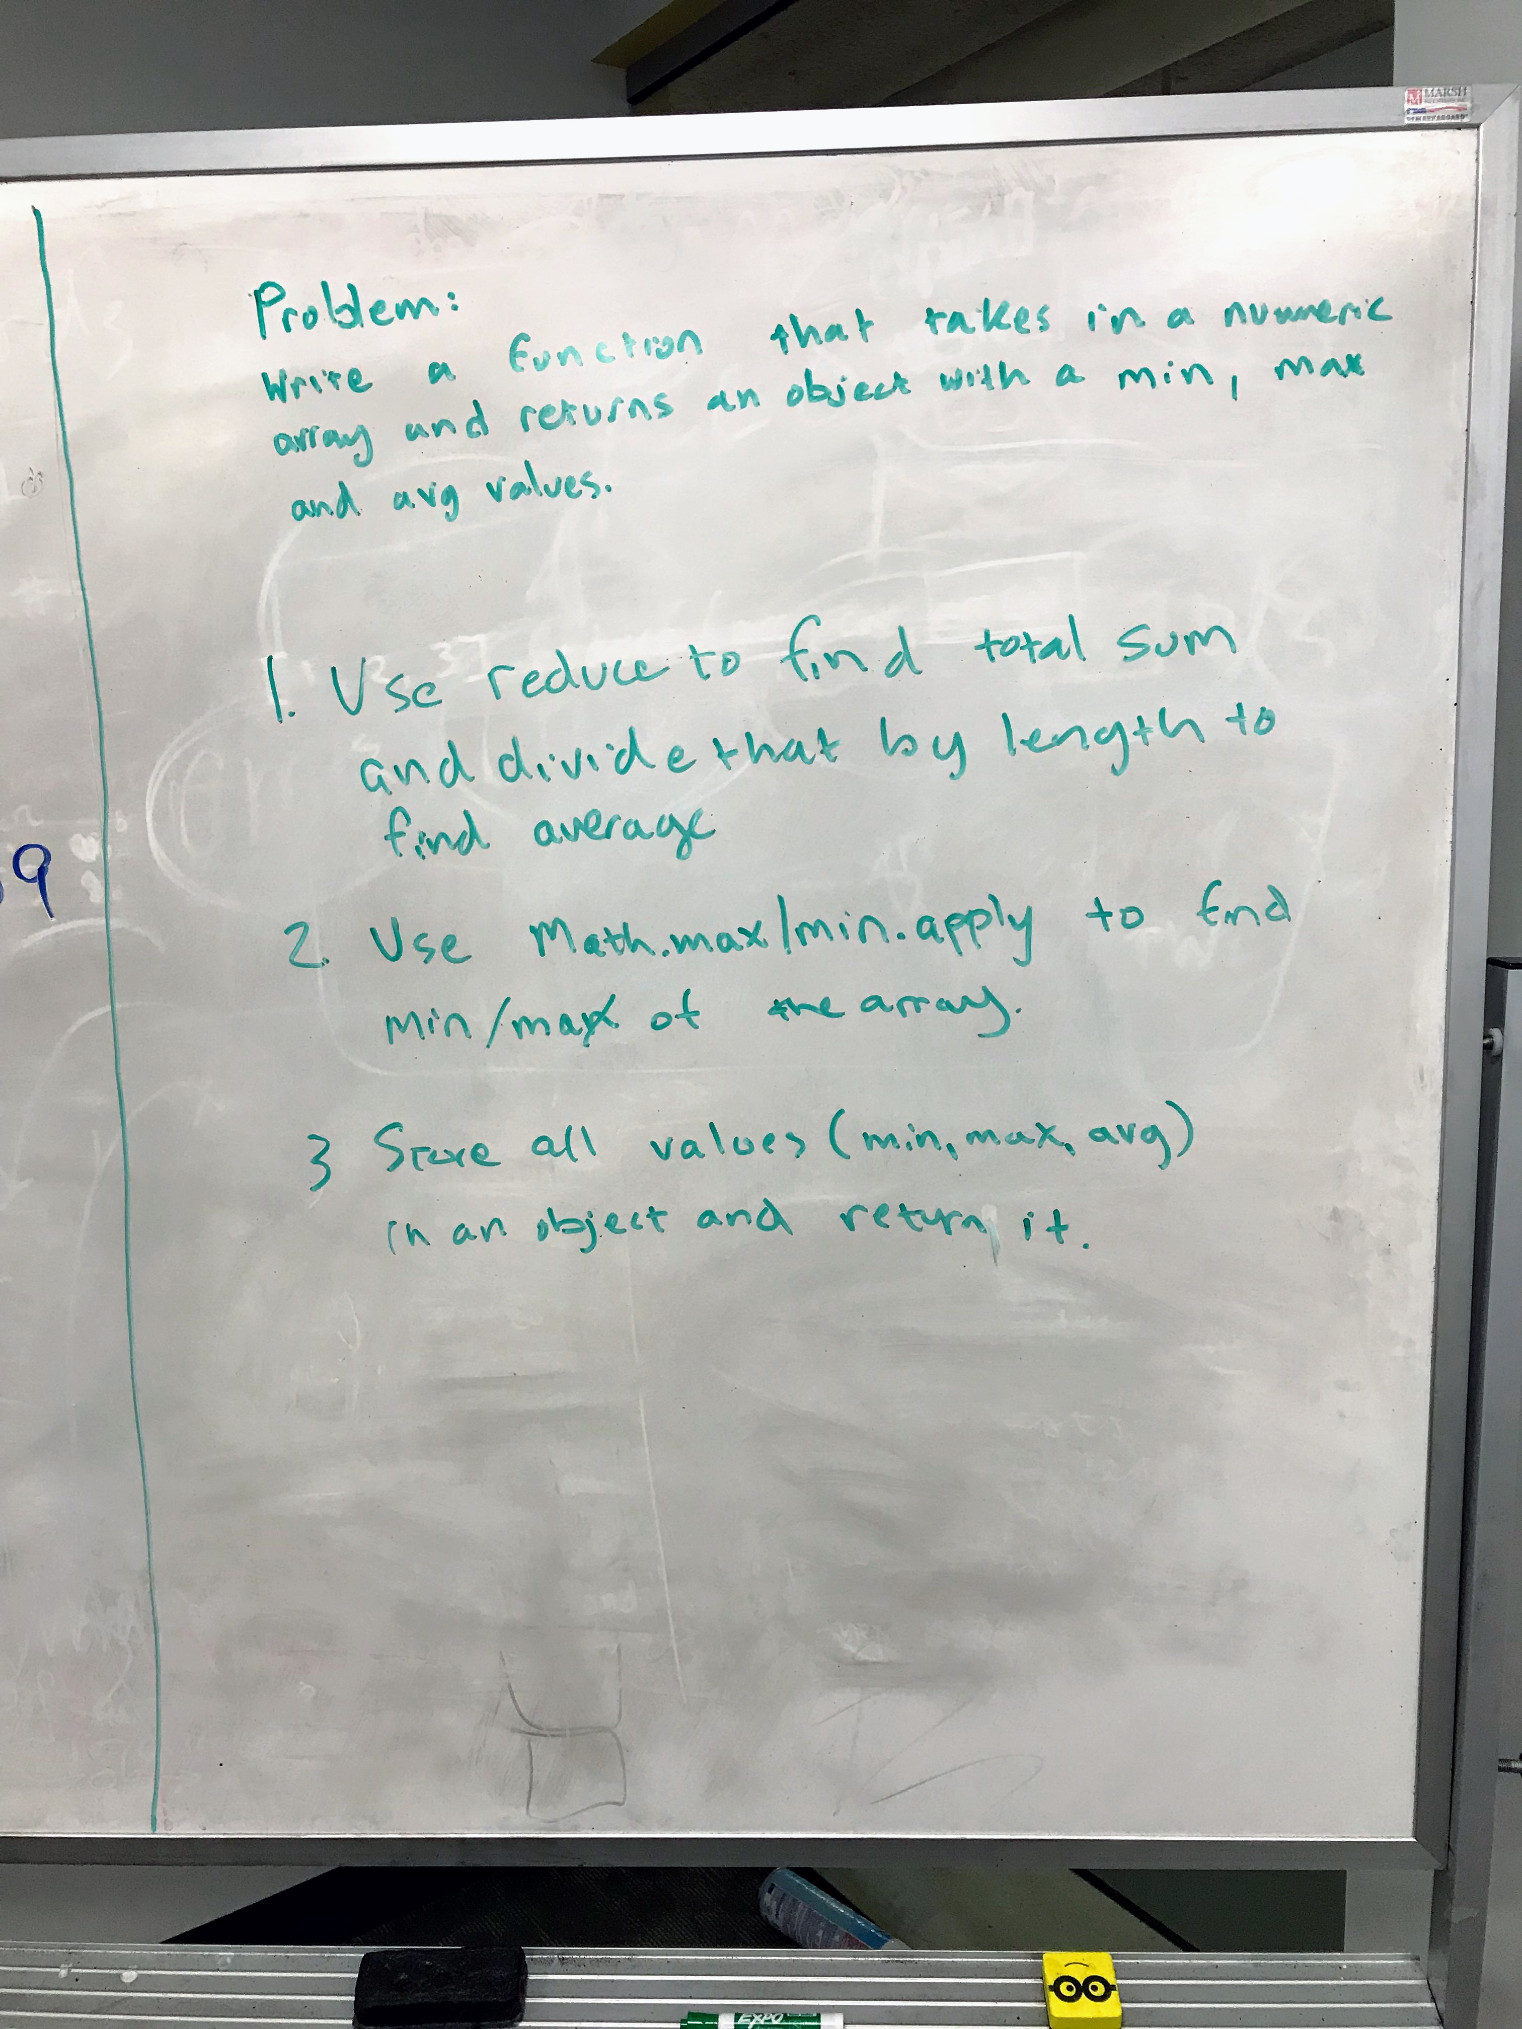 MARSH
Problem:
Write a function that takes in a nummeric
array and returns an object with a min, max
and avg values.
1. Use reduce to find total sum
and divide that by length to
find average
9
2. Use Math.max/min.apply to find
min/max of the array.
3 Store all values (min, max, avg)
in an object and return it.
EXPO